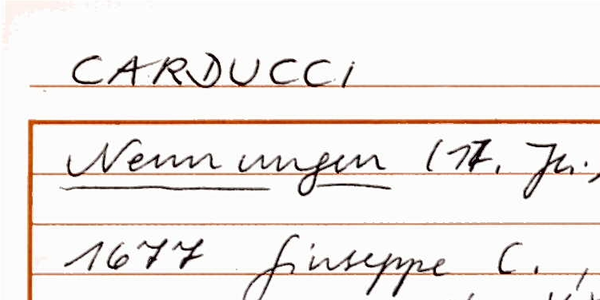 CARDUCCI
Nennungen (17. Jh.,
1677 Giuseppe C.,